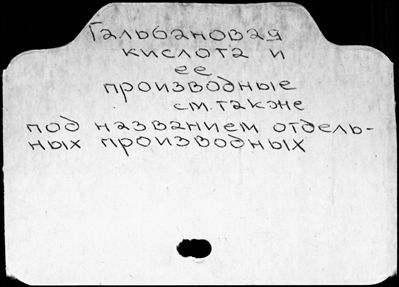 Гальбановая
кислота и
ее
производные
см. также
под названием отдель-
ных производных